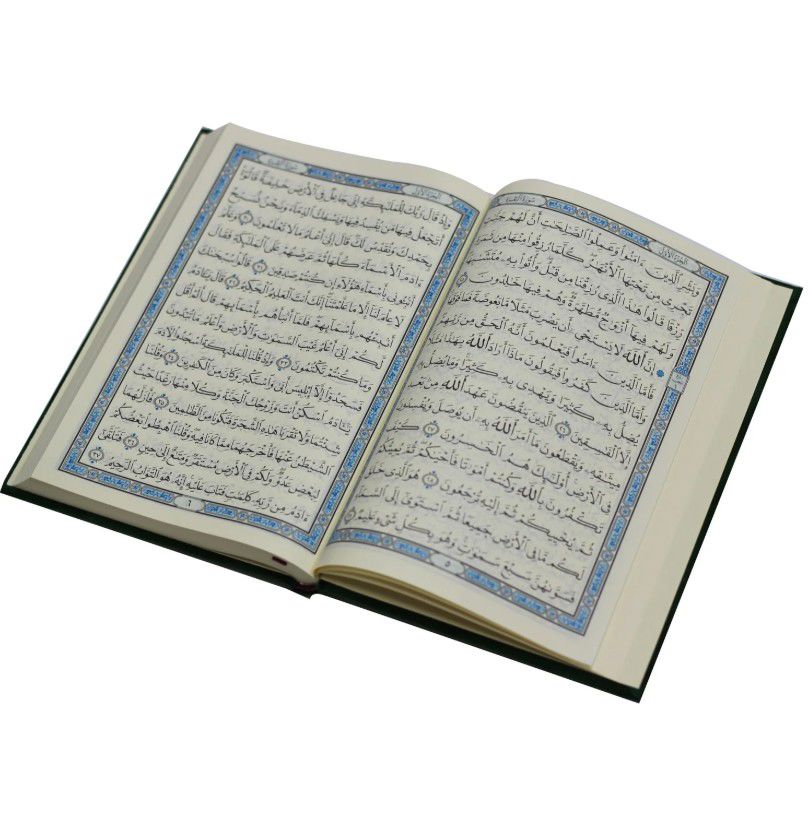 الجزء الأول
سورة البقرة
وَبَشِّرِ الَّذِينَ ءَامَنُوا وَعَمِلُوا الصَّٰلِحَٰتِ أَنَّ لَهُمْ
تَجْرِي مِن تَحْتِهَا الْأَنْهَٰرُ كُلَّمَا رُزِقُوا مِنْهَا مِن
رِّزْقًا قَالُوا هَٰذَا الَّذِي رُزِقْنَا مِن قَبْلُ وَأُتُوا بِهِ
وَلَهُمْ فِيهَا أَزْوَٰجٌ مُّطَهَّرَةٌ وَهُمْ فِيهَا خَٰلِدُونَ ٢٥
إِنَّ اللَّهَ لَا يَسْتَحْيِ أَن يَضْرِبَ مَثَلًا مَّا بَعُوضَةً فَمَا فَوْقَهَا
فَأَمَّا الَّذِينَ ءَامَنُوا فَيَعْلَمُونَ أَنَّهُ الْحَقُّ مِن رَّبِّهِمْ
وَأَمَّا الَّذِينَ كَفَرُوا فَيَقُولُونَ مَاذَا أَرَادَ اللَّهُ بِهَٰذَا
يُضِلُّ بِهِ كَثِيرًا وَيَهْدِي بِهِ كَثِيرًا وَمَا يُضِلُّ بِهِ
إِلَّا الْفَٰسِقِينَ ٢٦ الَّذِينَ يَنقُضُونَ عَهْدَ اللَّهِ مِن بَعْدِ
مِيثَٰقِهِ وَيَقْطَعُونَ مَا أَمَرَ اللَّهُ بِهِ أَن يُوصَلَ وَيُفْسِدُونَ
فِي الْأَرْضِ أُولَٰئِكَ هُمُ الْخَٰسِرُونَ ٢٧ كَيْفَ
تَكْفُرُونَ بِاللَّهِ وَكُنتُمْ أَمْوَٰتًا فَأَحْيَٰكُمْ ثُمَّ يُمِيتُكُمْ
ثُمَّ يُحْيِيكُمْ ثُمَّ إِلَيْهِ تُرْجَعُونَ ٢٨ هُوَ الَّذِي خَلَقَ
لَكُم مَّا فِي الْأَرْضِ جَمِيعًا ثُمَّ اسْتَوَىٰ إِلَى السَّمَاءِ
فَسَوَّىٰهُنَّ سَبْعَ سَمَٰوَٰتٍ وَهُوَ بِكُلِّ شَيْءٍ عَلِيمٌ ٢٩
٥
الجزء الأول
سورة البقرة
وَإِذْ قَالَ رَبُّكَ لِلْمَلَٰئِكَةِ إِنِّي جَاعِلٌ فِي الْأَرْضِ خَلِيفَةً قَالُوا
أَتَجْعَلُ فِيهَا مَن يُفْسِدُ فِيهَا وَيَسْفِكُ الدِّمَاءَ وَنَحْنُ نُسَبِّحُ
بِحَمْدِكَ وَنُقَدِّسُ لَكَ قَالَ إِنِّي أَعْلَمُ مَا لَا تَعْلَمُونَ ٣٠ وَعَلَّمَ
ءَادَمَ الْأَسْمَاءَ كُلَّهَا ثُمَّ عَرَضَهُمْ عَلَى الْمَلَٰئِكَةِ فَقَالَ
أَنبِـُٔونِي بِأَسْمَاءِ هَٰؤُلَاءِ إِن كُنتُمْ صَٰدِقِينَ ٣١ قَالُوا سُبْحَٰنَكَ
لَا عِلْمَ لَنَا إِلَّا مَا عَلَّمْتَنَا إِنَّكَ أَنتَ الْعَلِيمُ الْحَكِيمُ ٣٢ قَالَ يَٰـَٔادَمُ
أَنبِئْهُم بِأَسْمَائِهِمْ فَلَمَّا أَنبَأَهُم بِأَسْمَائِهِمْ قَالَ أَلَمْ أَقُل
لَّكُمْ إِنِّي أَعْلَمُ غَيْبَ السَّمَٰوَٰتِ وَالْأَرْضِ وَأَعْلَمُ مَا تُبْدُونَ
وَمَا كُنتُمْ تَكْتُمُونَ ٣٣ وَإِذْ قُلْنَا لِلْمَلَٰئِكَةِ اسْجُدُوا لِـَٔادَمَ
فَسَجَدُوا إِلَّا إِبْلِيسَ أَبَىٰ وَاسْتَكْبَرَ وَكَانَ مِنَ الْكَٰفِرِينَ ٣٤ وَقُلْنَا
يَٰـَٔادَمُ اسْكُنْ أَنتَ وَزَوْجُكَ الْجَنَّةَ وَكُلَا مِنْهَا رَغَدًا حَيْثُ
شِئْتُمَا وَلَا تَقْرَبَا هَٰذِهِ الشَّجَرَةَ فَتَكُونَا مِنَ الظَّٰلِمِينَ ٣٥ فَأَزَلَّهُمَا
الشَّيْطَٰنُ عَنْهَا فَأَخْرَجَهُمَا مِمَّا كَانَا فِيهِ وَقُلْنَا اهْبِطُوا بَعْضُكُمْ
لِبَعْضٍ عَدُوٌّ وَلَكُمْ فِي الْأَرْضِ مُسْتَقَرٌّ وَمَتَٰعٌ إِلَىٰ حِينٍ ٣٦ فَتَلَقَّىٰ
ءَادَمُ مِن رَّبِّهِ كَلِمَٰتٍ فَتَابَ عَلَيْهِ إِنَّهُ هُوَ التَّوَّابُ الرَّحِيمُ ٣٧
٦